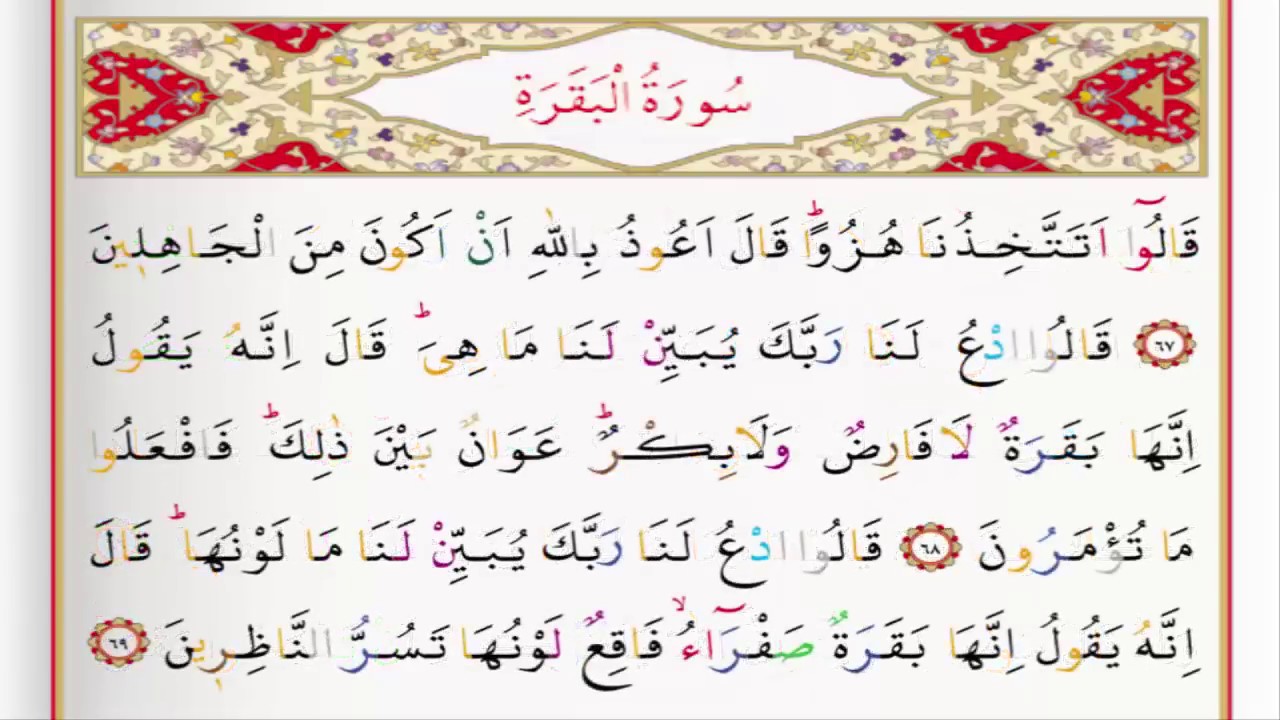 سُورَةُ الْبَقَرَةِ
قَالُٓوا اَتَتَّخِذُنَا هُزُوًاۜ قَالَ اَعُوذُ بِاللّٰهِ اَنْ اَكُونَ مِنَ الْجَاهِلٖينَ
٦٧ قَالُوا ادْعُ لَنَا رَبَّكَ يُبَيِّنْ لَنَا مَا هِىَۜ قَالَ اِنَّهُ يَقُولُ
اِنَّهَا بَقَرَةٌ لَا فَارِضٌ وَلَا بِكْرٌۜ عَوَانٌ بَيْنَ ذٰلِكَۜ فَافْعَلُوا
مَا تُؤْمَرُونَ ٦٨ قَالُوا ادْعُ لَنَا رَبَّكَ يُبَيِّنْ لَنَا مَا لَوْنُهَاۜ قَالَ
اِنَّهُ يَقُولُ اِنَّهَا بَقَرَةٌ صَفْرَٓاءُۙ فَاقِعٌ لَوْنُهَا تَسُرُّ النَّاظِرٖينَ ٦٩